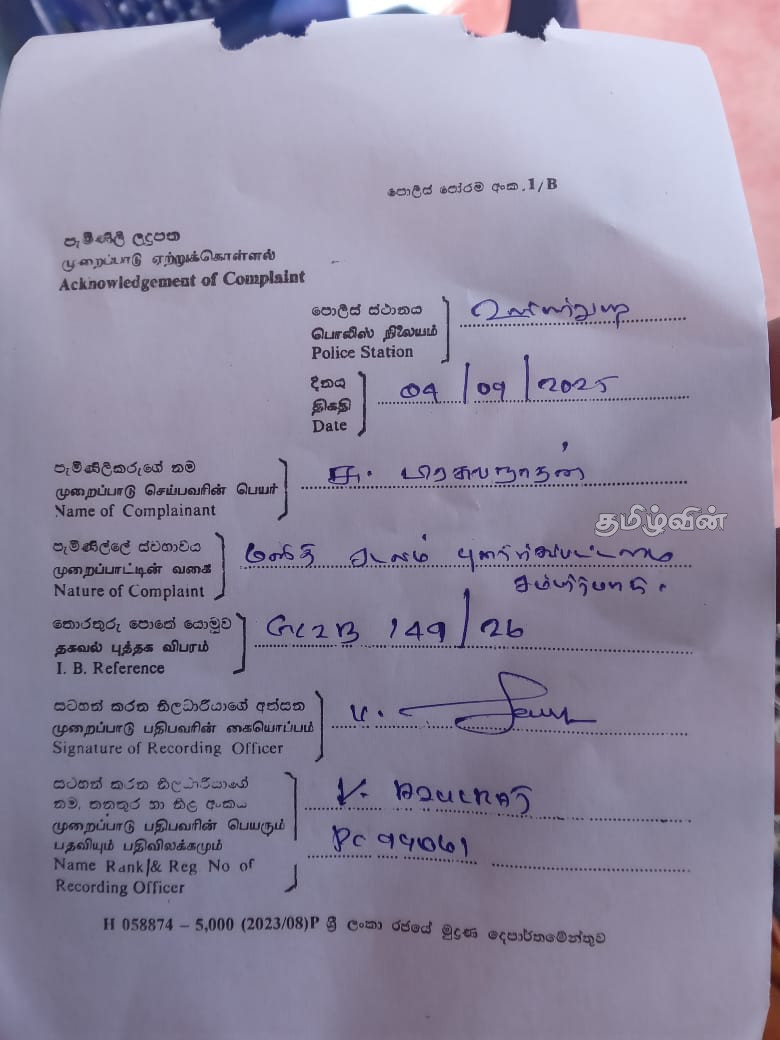 පොලිස් පෝරම අංක.1/B
පැමිණිලි ලදුපත
முறைப்பாடு ஏற்றுக்கொள்ளல்
Acknowledgement of Complaint
පොලිස් ස්ථානය
பொலிஸ் நிலையம்
Police Station
දිනය
திகதி
Date
04/09/2025
පැමිණිලිකරුගේ නම
முறைப்பாடு செய்பவரின் பெயர்
Name of Complainant
தமிழ்வின்
පැමිණිල්ලේ ස්වභාවය
முறைப்பாட்டின் வகை
Nature of Complaint
மனித
சம்பந்தமாக.
තොරතුරු පොතේ යොමුව
தகவல் புத்தக விபரம்
I. B. Reference
149/26
සටහන් කරන නිලධාරියාගේ අත්සන
முறைப்பாடு பதிபவரின் கையொப்பம்
Signature of Recording Officer
සටහන් කරන නිලධාරියාගේ
නම, තනතුර හා නිල අංකය
முறைப்பாடு பதிபவரின் பெயரும்
பதவியும் பதிவிலக்கமும்
Name Rank/& Reg No of
Recording Officer
PC 99061
H 058874 – 5,000 (2023/08)P ශ්‍රී ලංකා රජයේ මුද්‍රණ දෙපාර්තමේන්තුව